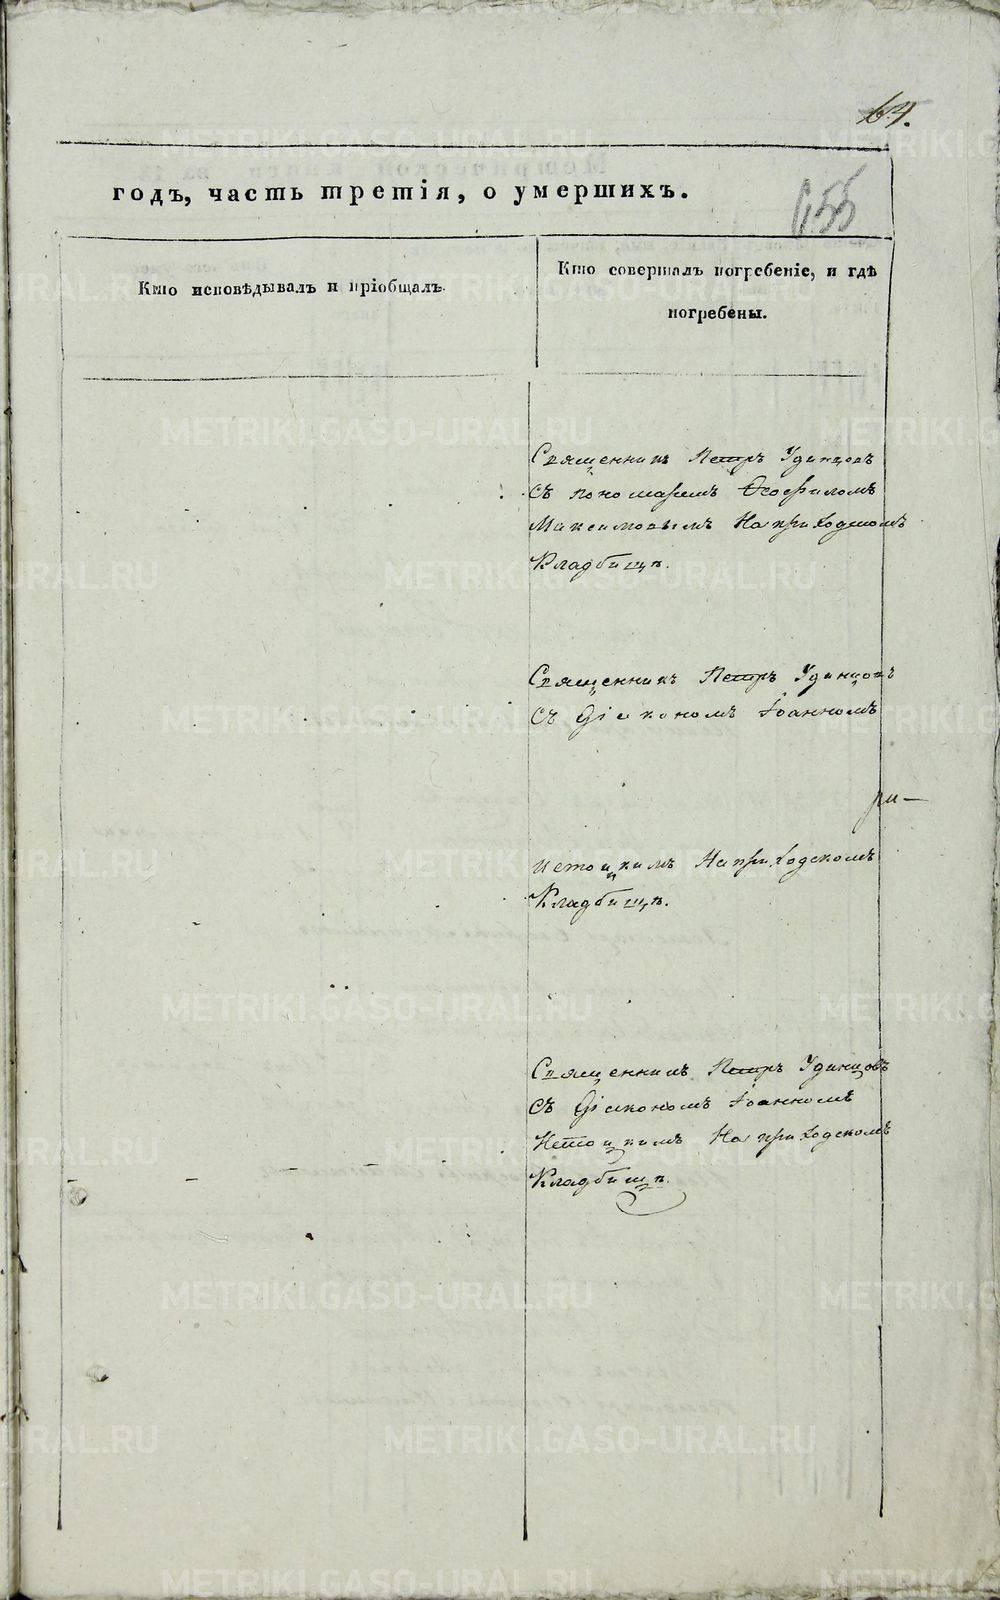 64.
годъ, часть третія, о умершихъ.
655
Кто исповѣдывалъ и пріобщалъ.
Кто совершалъ погребеніе, и гдѣ
погребены.
Священникъ Петръ Удинцовъ
съ пономаремъ Ѳеофиломъ
Максимовымъ На приходскомъ
Кладбищѣ.
Священникъ Петръ Удинцовъ
съ Діакономъ Іоанномъ
Истоцкимъ На приходскомъ
Кладбищѣ.
Священникъ Петръ Удинцовъ
съ Діакономъ Іоанномъ
Истоцкимъ На приходскомъ
Кладбищѣ.
METRIKI.GASO-URAL.RU